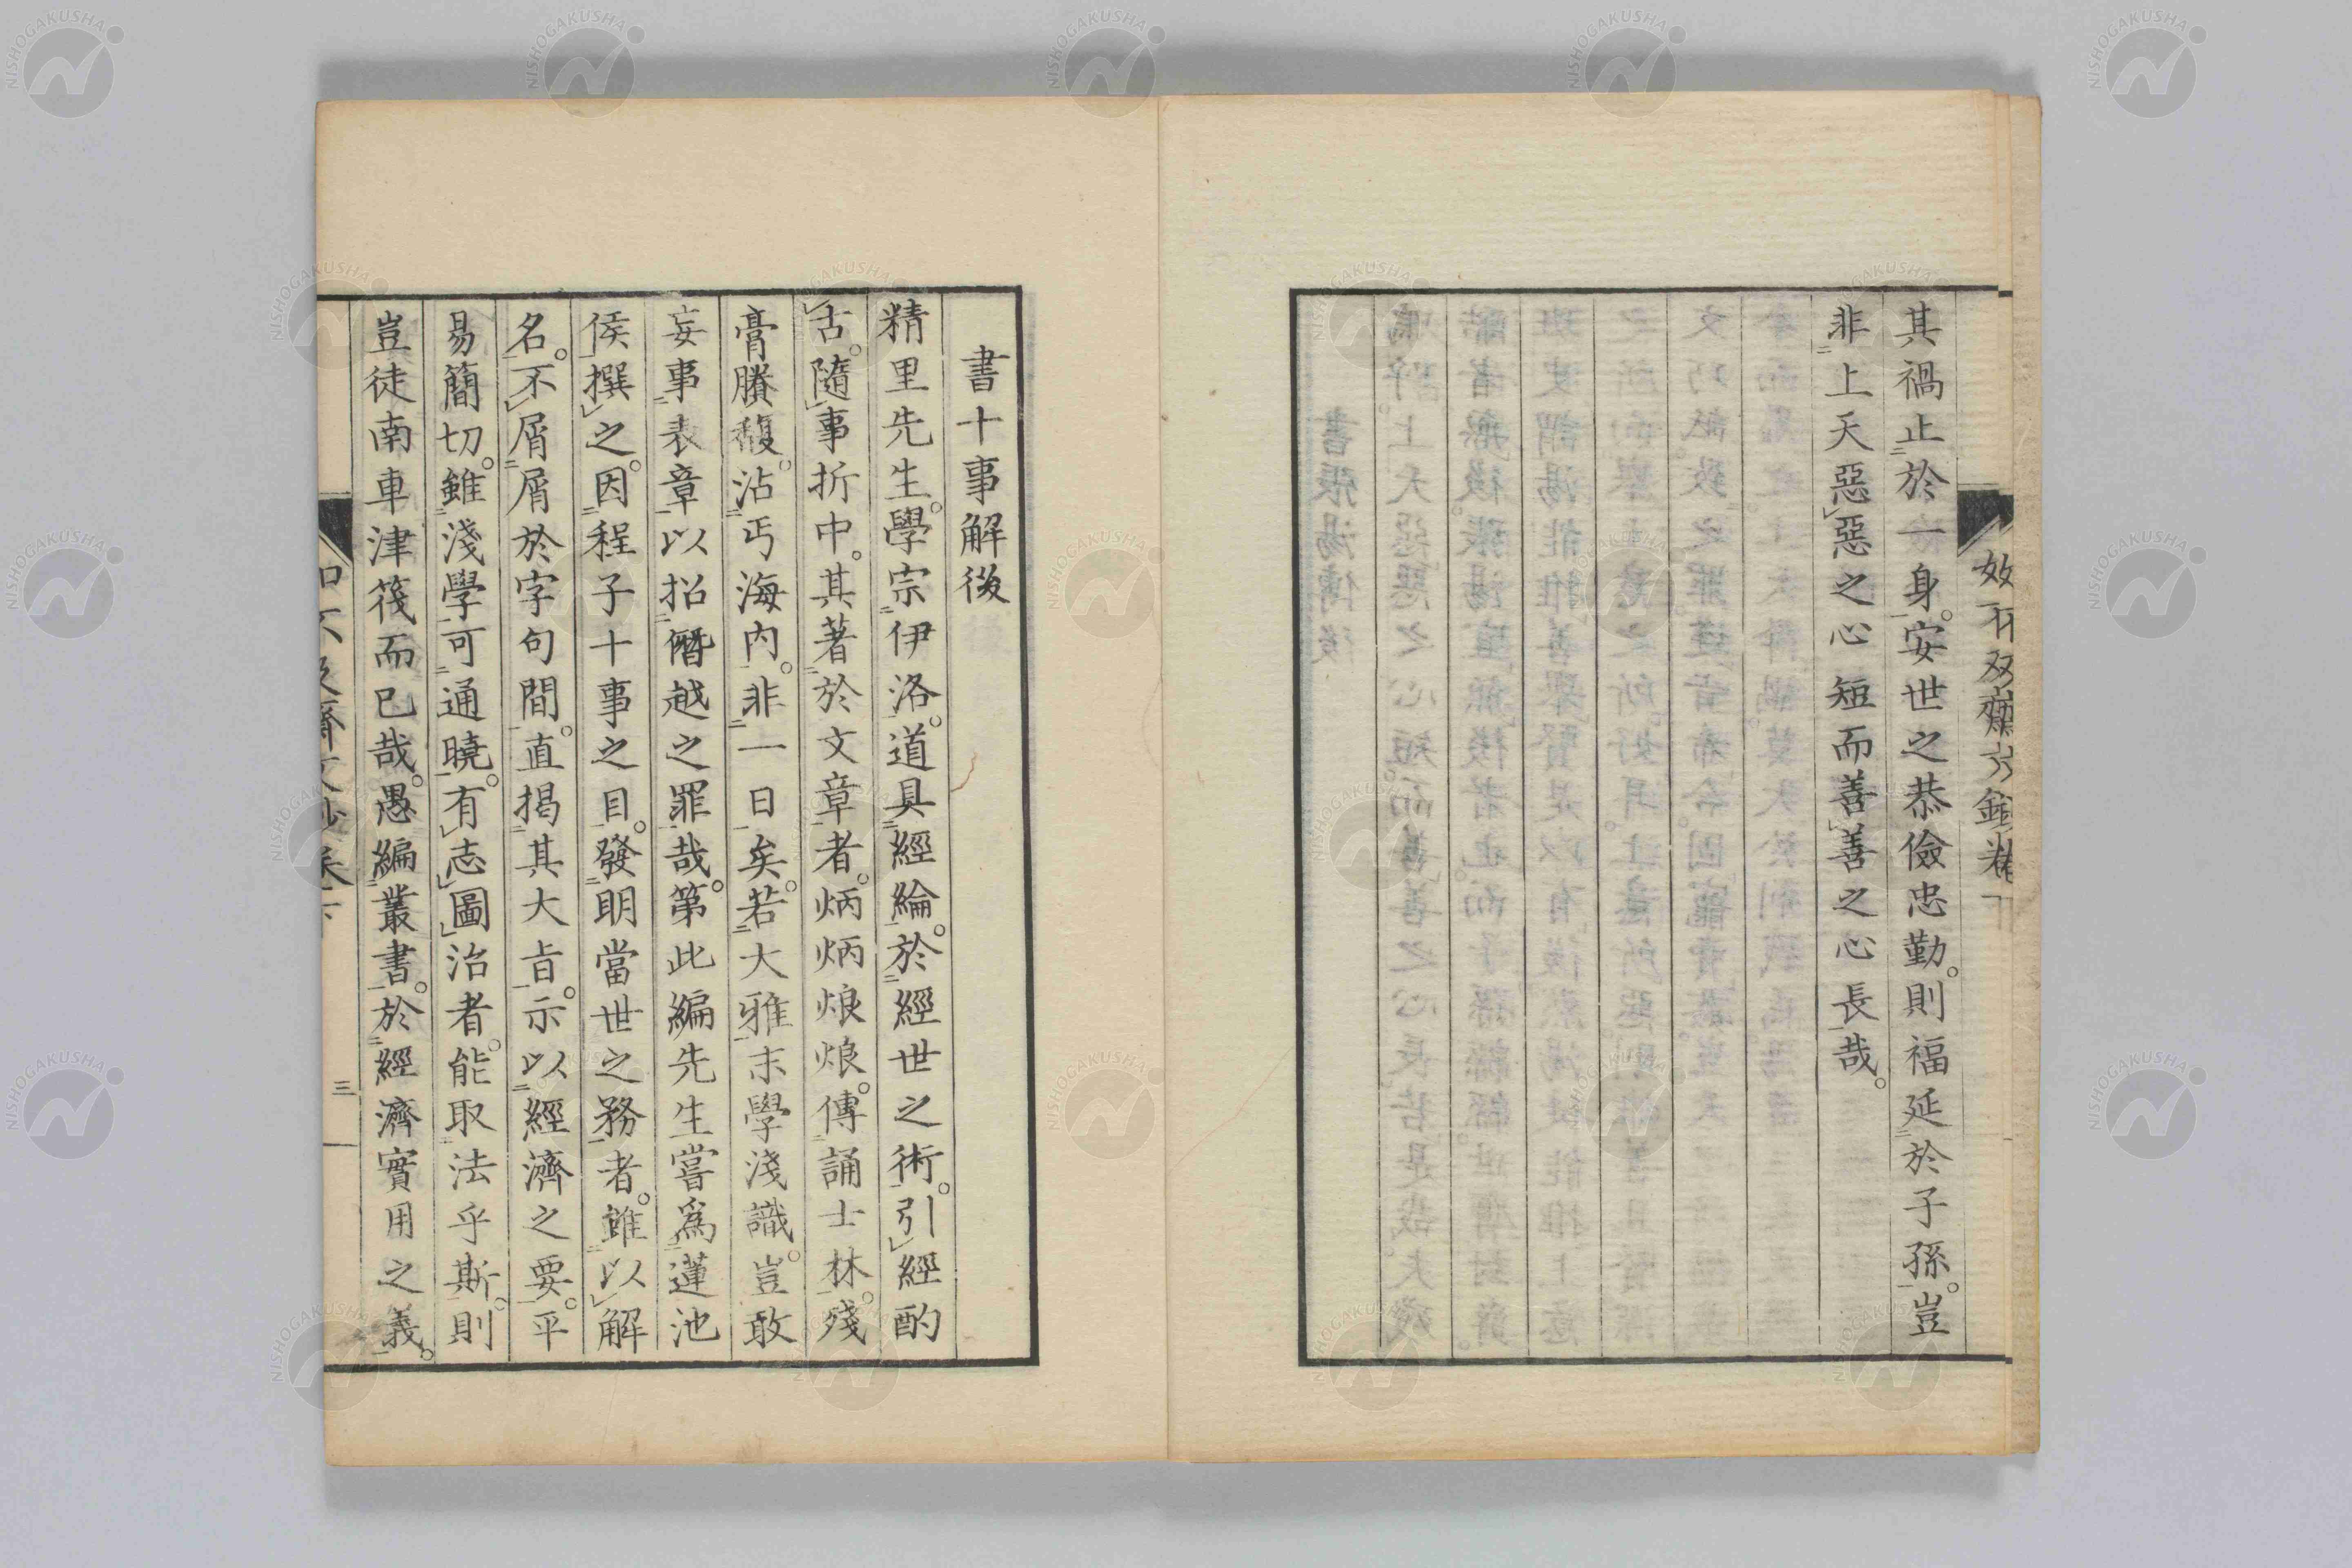 其禍止於一身。安世之恭儉忠勤。則福延於子孫。豈
非上天惡惡之心短而善善之心長哉。
書十事解後
精里先生。學宗伊洛。道具經綸。於經世之術。引經酌
古。隨事折中。其著於文章者。炳炳烺烺。傳誦士林。殘
膏賸馥。沾丐海內。非一日矣。若大雅末學淺識。豈敢
妄事表章。以招僭越之罪哉。第此編先生嘗爲蓮池
侯撰之。因程子十事之目。發明當世之務者。雖以解
名。不屑屑於字句間。直揭其大旨。示以經濟之要。平
易簡切。雖淺學可通曉。有志圖治者。能取法乎斯。則
豈徒南車津筏而已哉。愚編叢書。於經濟實用之義。
三
NISHOGAKUSHA